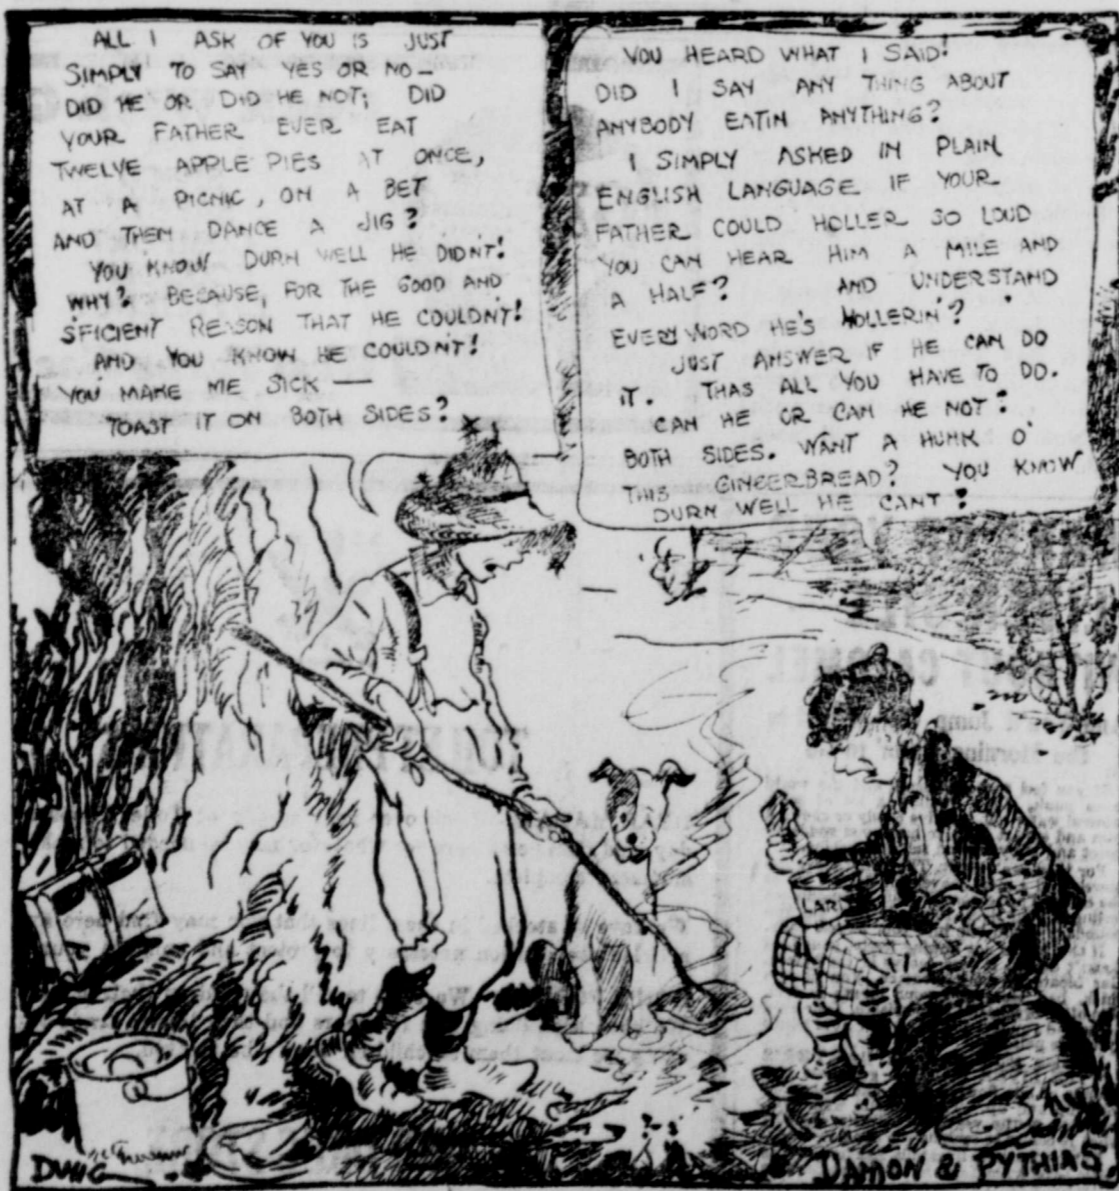 ALL I ASK OF YOU IS JUST
SIMPLY TO SAY YES OR NO—
DID HE OR DID HE NOT; DID
YOUR FATHER EVER EAT
TWELVE APPLE PIES AT ONCE,
AT A PICNIC, ON A BET
AND THEN DANCE A JIG?
YOU KNOW DURN WELL HE DIDNT!
WHY? BECAUSE, FOR THE GOOD AND
S'FICIENT REASON THAT HE COULDN'T!
AND YOU KNOW HE COULDN'T!
YOU MAKE ME SICK —
TOAST IT ON BOTH SIDES?
YOU HEARD WHAT I SAID!
DID I SAY ANY THING ABOUT
ANYBODY EATIN ANYTHING?
I SIMPLY ASKED IN PLAIN
ENGLISH LANGUAGE IF YOUR
FATHER COULD HOLLER SO LOUD
YOU CAN HEAR HIM A MILE AND
A HALF? AND UNDERSTAND
EVERY WORD HE'S HOLLERIN'?
JUST ANSWER IF HE CAN DO
IT. THAS ALL YOU HAVE TO DO.
CAN HE OR CAN HE NOT?
BOTH SIDES. WANT A HUNK O'
THIS GINGERBREAD? YOU KNOW
DURN WELL HE CANT!
LARD
DWIG
DAMON & PYTHIAS